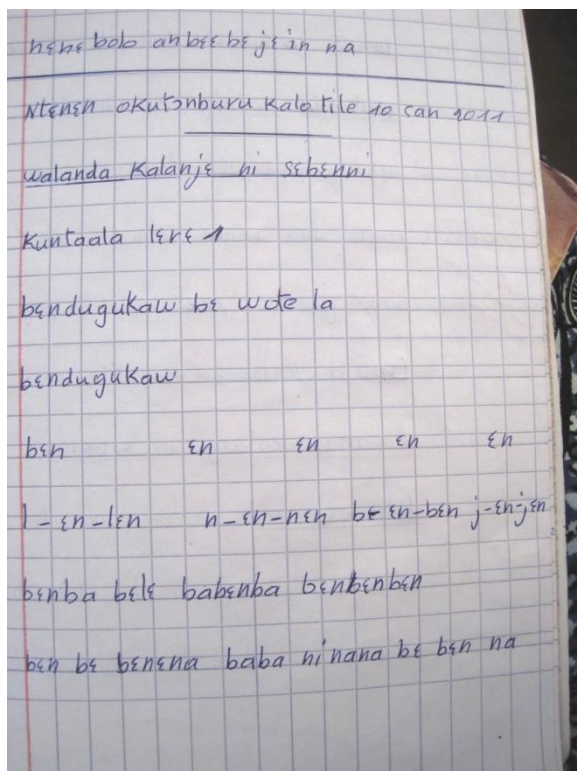 nɛnɛ bolo an bɛɛ bɛ jɛ in na
Ntɛnɛn okutɔnburu kalo tile 10 san 2011
walanda kalanjɛ ni sɛbɛnni
Kuntaala lɛrɛ 1
bɛndugukaw bɛ wote la
bɛndugukaw
bɛn ɛn ɛn ɛn ɛn
l-ɛn-lɛn n-ɛn-nɛn b-ɛn-bɛn j-ɛn-jɛn
bɛnba bɛlɛ babɛnba bɛnbɛnbɛn
bɛn bɛ bɛnɛna baba ni nana bɛ bɛn na